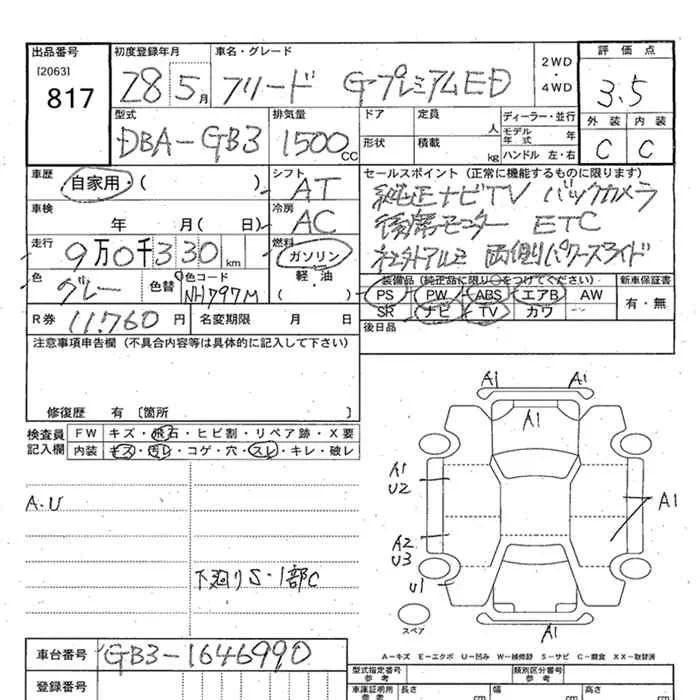 出品番号 初度登録年月 車名・グレード 2WD・4WD 評価点
[2063] 817 28 5月 フリード GプレミアムED 3.5
型式 排気量 ドア 定員 人 ディーラー・並行 外装 内装
DBA-GB3 1500cc 形状 積載 kg モデル年式 年 ハンドル 左・右 C C
車歴 自家用・( ) シフト AT セールスポイント(正常に機能するものに限ります)
純正ナビTV バックカメラ
車検 年 月( 日) 冷房 AC 後席モニター ETC
走行 9万0千330km 燃料 ガソリン 軽・油 社外アルミ 両側パワースライド
色 グレー 色替 色コード NH797M 装備品(純正品に限り○をつけてください) 新車保証書
PS PW ABS エアB AW 有・無
R券 11.760円 名変期限 月 日 SR ナビ TV カワ
注意事項申告欄(不具合内容等は具体的に記入して下さい) 後日品
修復歴 有 [箇所 ]
検査員記入欄 FW キズ・飛石・ヒビ割・リペア跡・X要
内装 キズ・汚レ・コゲ・穴・スレ・キレ・破レ
A1 A1
A1
A1
U2
A.U
A1
A2
U3
下廻りS・1部C
U1
スペア
A1
A-キズ E-エクボ U-凹み W-補修跡 S-サビ C-腐食 XX-取替済
車台番号 GB3-1646990
型式指定番号 参考 類別区分番号 参考
登録番号 車庫証明用 参考 長さ cm 幅 cm 高さ cm